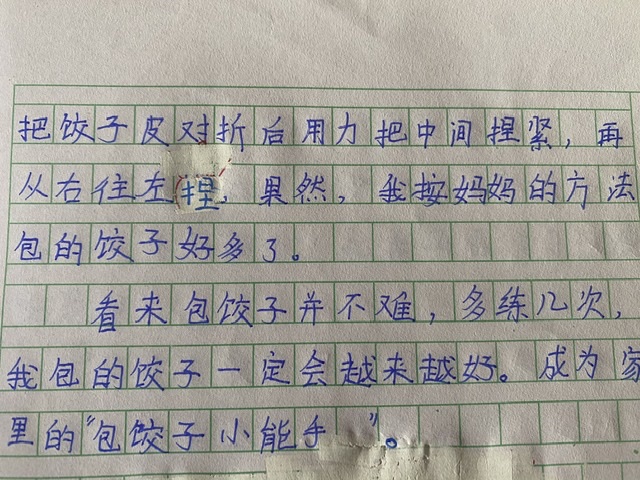 把饺子皮对折后用力把中间捏紧，再
从右往左捏，果然，我按妈妈的方法
包的饺子好多了。
看来包饺子并不难，多练几次，
我包的饺子一定会越来越好。成为家
里的“包饺子小能手”。